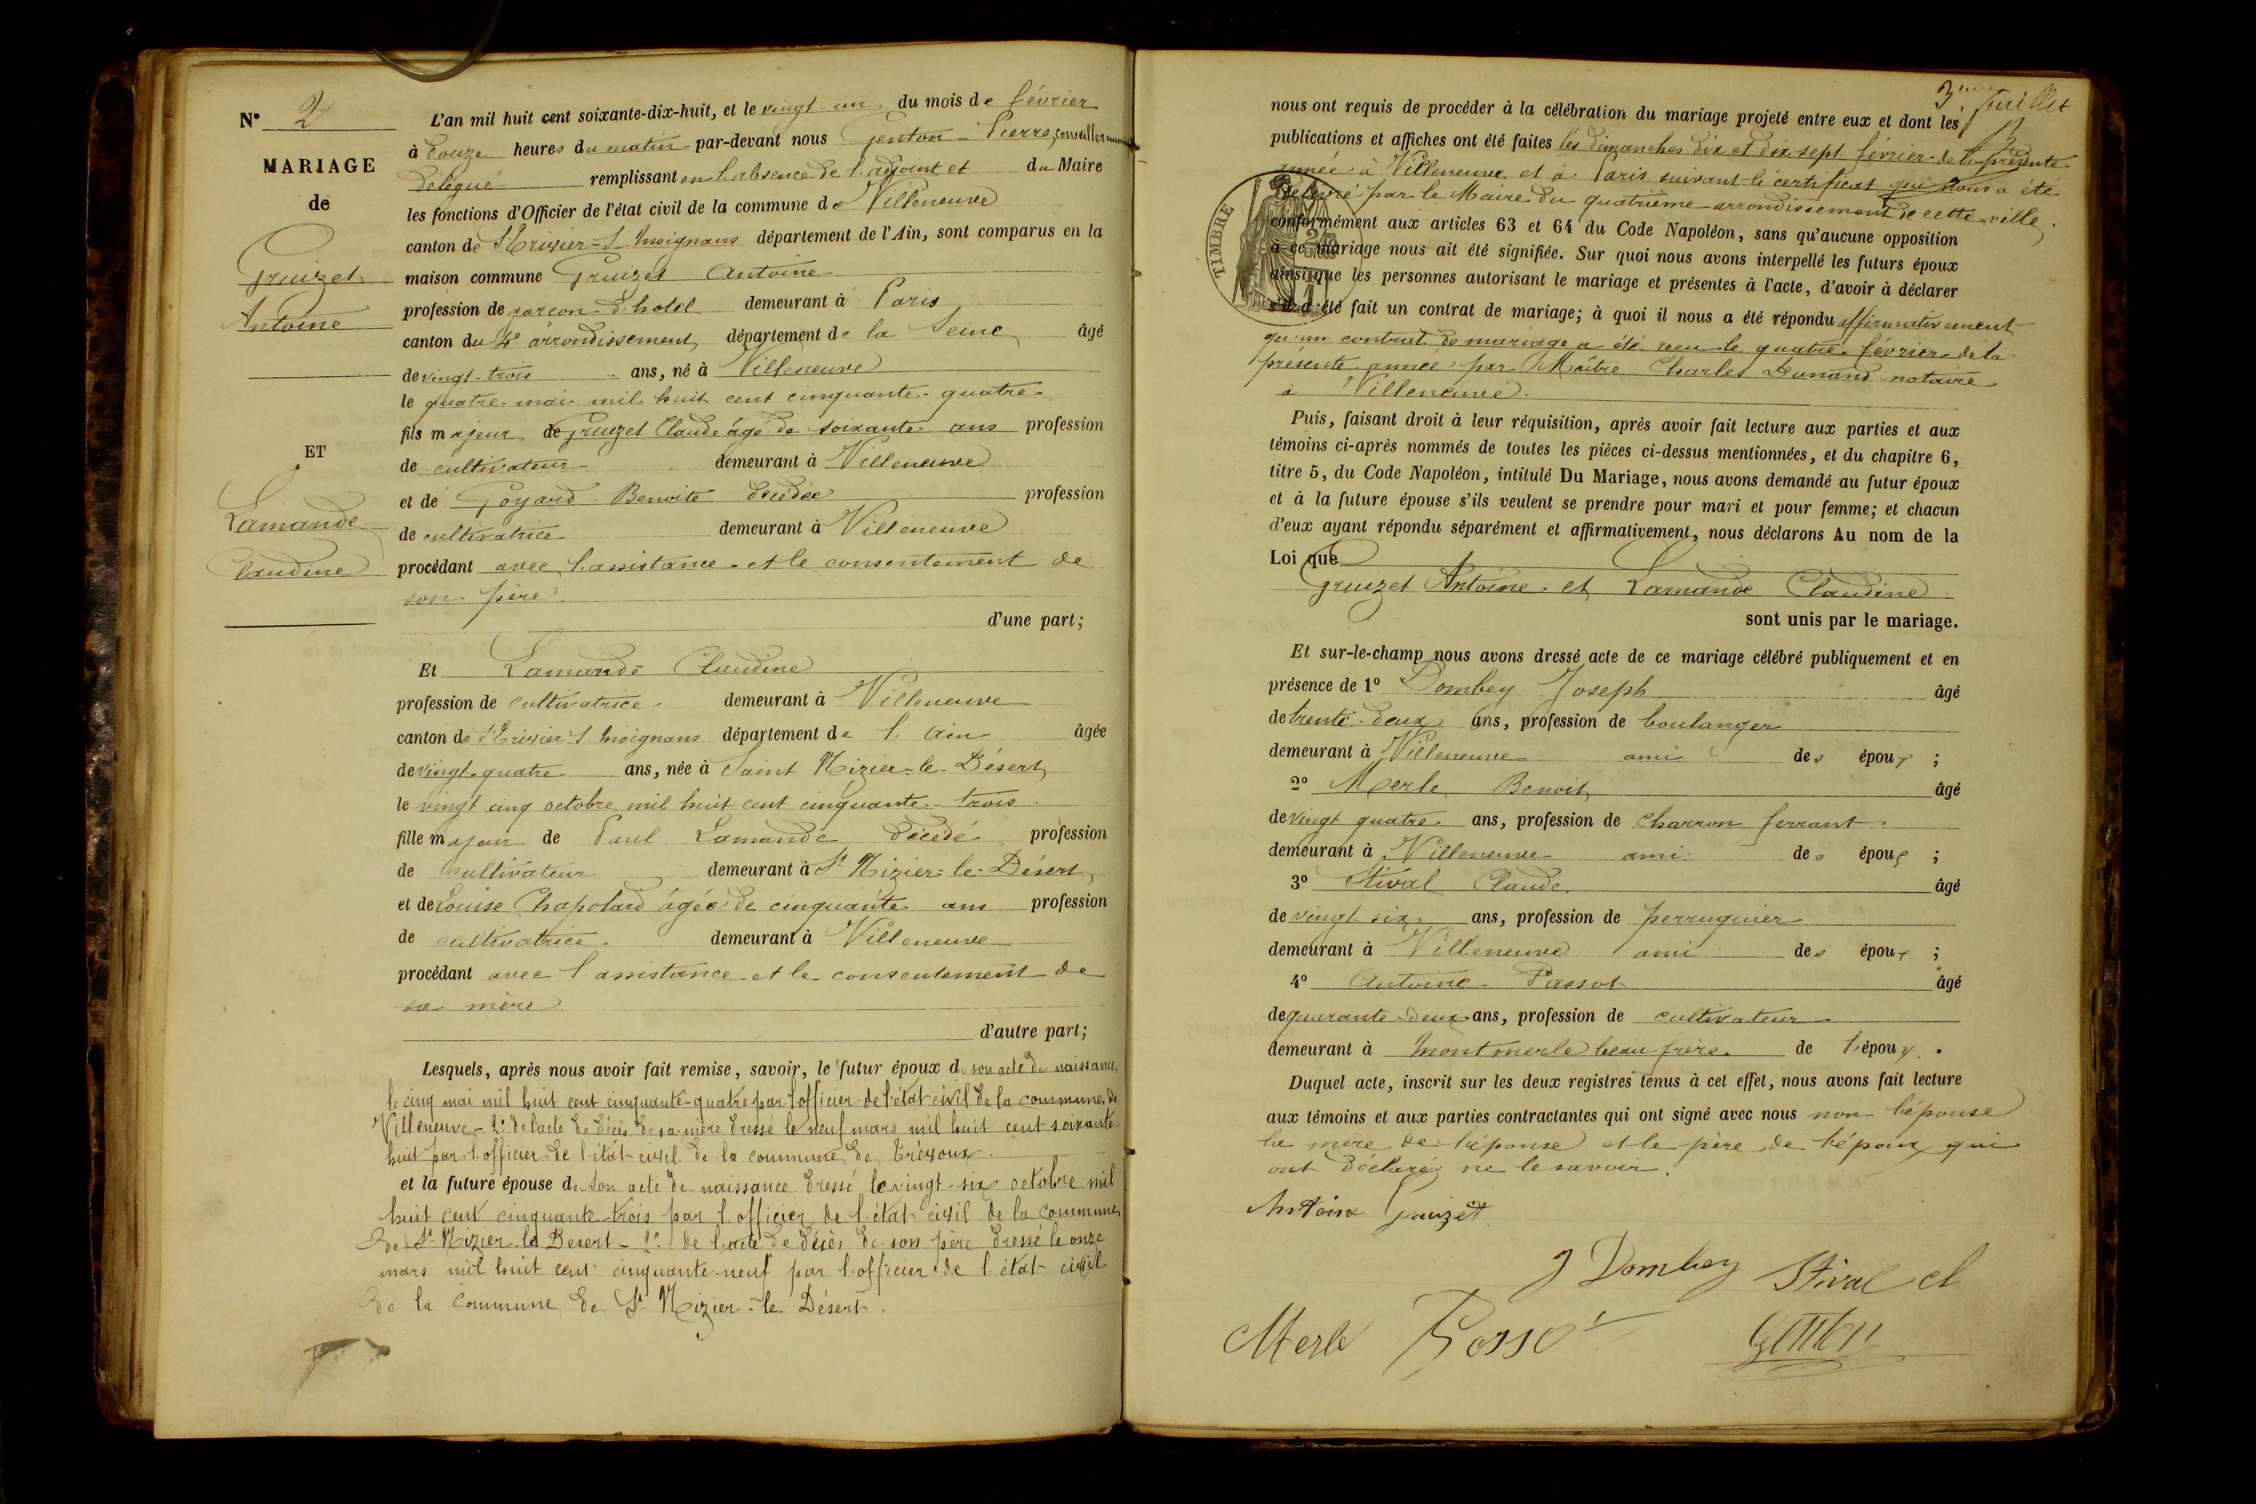 N° 2
MARIAGE
de
Gruizet
Antoine
ET
Lamande
Claudine
L'an mil huit cent soixante-dix-huit, et le vingt-un du mois de février
à douze heures du matin par-devant nous Genton Pierre, conseiller
délégué remplissant en l'absence de l'adjoint et du Maire
les fonctions d'Officier de l'état civil de la commune de Villeneuve
canton de St Trivier-s-Moignans département de l'Ain, sont comparus en la
maison commune Gruizet Antoine
profession de garçon d'hotel demeurant à Paris
canton du 4e arrondissement, département de la Seine, âgé
de vingt-trois ans, né à Villeneuve
le quatre mai mil huit cent cinquante-quatre
fils majeur de Gruizet Claude âgé de soixante ans profession
de cultivateur demeurant à Villeneuve
et de Goyard Benoite décédée profession
de cultivatrice demeurant à Villeneuve
procédant avec l'assistance et le consentement de
son père
d'une part;
Et Lamande Claudine
profession de cultivatrice demeurant à Villeneuve
canton de St Trivier s Moignans département de l'Ain âgée
de vingt-quatre ans, née à Saint Nizier-le-Désert
le vingt cinq octobre mil huit cent cinquante-trois
fille majeur de Paul Lamande décédé profession
de cultivateur demeurant à St Nizier-le-Désert
et de Louise Chapolard âgée de cinquante ans profession
de cultivatrice demeurant à Villeneuve
procédant avec l'assistance et le consentement de
sa mère
d'autre part;
Lesquels, après nous avoir fait remise, savoir, le futur époux de son acte de naissance
le cinq mai mil huit cent cinquante-quatre par l'officier de l'état civil de la commune de
Villeneuve - 2° de l'acte de décès de sa mère dressé le neuf mars mil huit cent soixante
huit par l'officier de l'état civil de la commune de Trévoux.
et la future épouse de son acte de naissance dressé le vingt-six octobre mil
huit cent cinquante-trois par l'officier de l'état civil de la commune
de St Nizier le Desert - 2° de l'acte de décès de son père dressé le onze
mars mil huit cent cinquante-neuf par l'officier de l'état civil
de la commune de St Nizier-le-Désert.
3eme Feuillet
nous ont requis de procéder à la célébration du mariage projeté entre eux et dont les
publications et affiches ont été faites les dimanches dix et dix sept février de la présente
année à Villeneuve et à Paris suivant le certificat qui nous a été
délivré par le Maire du quatrième arrondissement de cette ville,
TIMBRE
conformément aux articles 63 et 64 du Code Napoléon, sans qu'aucune opposition
à ce mariage nous ait été signifiée. Sur quoi nous avons interpellé les futurs époux
ainsi que les personnes autorisant le mariage et présentes à l'acte, d'avoir à déclarer
s'il a été fait un contrat de mariage; à quoi il nous a été répondu affirmativement
qu'un contrat de mariage a été reçu le quatre février de la
présente année par Maître Charles Dunand notaire
à Villeneuve.
Puis, faisant droit à leur réquisition, après avoir fait lecture aux parties et aux
témoins ci-après nommés de toutes les pièces ci-dessus mentionnées, et du chapitre 6,
titre 5, du Code Napoléon, intitulé Du Mariage, nous avons demandé au futur époux
et à la future épouse s'ils veulent se prendre pour mari et pour femme; et chacun
d'eux ayant répondu séparément et affirmativement, nous déclarons Au nom de la
Loi que
Gruizet Antoine et Lamande Claudine
sont unis par le mariage.
Et sur-le-champ nous avons dressé acte de ce mariage célébré publiquement et en
présence de 1° Dombey Joseph âgé
de trente-deux ans, profession de boulanger
demeurant à Villeneuve ami des époux ;
2° Merle Benoit âgé
de vingt quatre ans, profession de charron ferrant
demeurant à Villeneuve ami des époux ;
3° Stival Claude âgé
de vingt six ans, profession de perruquier
demeurant à Villeneuve ami des époux ;
4° Antoine Passot âgé
de quarante-deux ans, profession de cultivateur
demeurant à Montmerle beau frère de l'époux.
Duquel acte, inscrit sur les deux registres tenus à cet effet, nous avons fait lecture
aux témoins et aux parties contractantes qui ont signé avec nous non l'épouse
la mère de l'épouse et le père de l'époux qui
ont déclaré ne le savoir.
Antoine Gruizet
J Dombey Stival cl
Merle Passot Genton